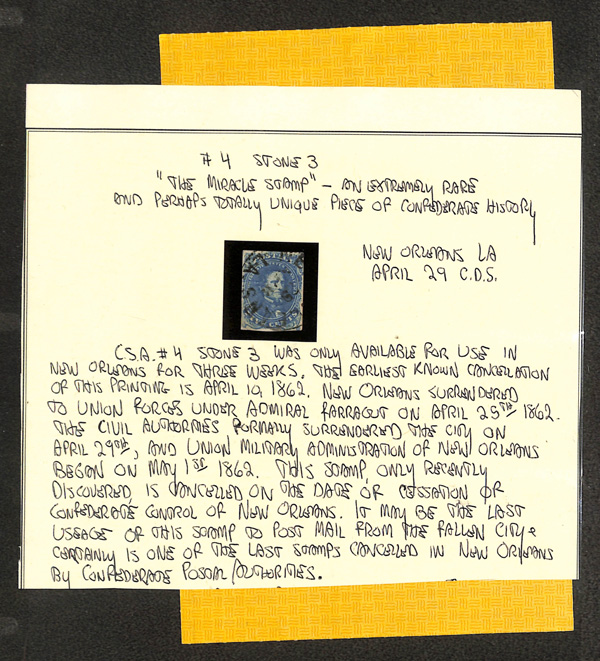 # 4 STONE 3
"THE MIRACLE STAMP" - AN EXTREMELY RARE
AND PERHAPS TOTALLY UNIQUE PIECE OF CONFEDERATE HISTORY
NEW ORLEANS LA
APRIL 29 C.D.S.
C.S.A. #4 STONE 3 WAS ONLY AVAILABLE FOR USE IN
NEW ORLEANS FOR THREE WEEKS. THE EARLIEST KNOWN CANCELLATION
OF THIS PRINTING IS APRIL 10, 1862. NEW ORLEANS SURRENDERED
TO UNION FORCES UNDER ADMIRAL FARRAGUT ON APRIL 25TH 1862.
THE CIVIL AUTHORITIES FORMALLY SURRENDERED THE CITY ON
APRIL 29TH, AND UNION MILITARY ADMINISTRATION OF NEW ORLEANS
BEGAN ON MAY 1ST 1862. THIS STAMP, ONLY RECENTLY
DISCOVERED, IS CANCELLED ON THE DATE OF CESSATION OF
CONFEDERATE CONTROL OF NEW ORLEANS. IT MAY BE THE LAST
USEAGE OF THIS STAMP TO POST MAIL FROM THE FALLEN CITY &
CERTAINLY IS ONE OF THE LAST STAMPS CANCELLED IN NEW ORLEANS
BY CONFEDERATE POSTAL AUTHORITIES.